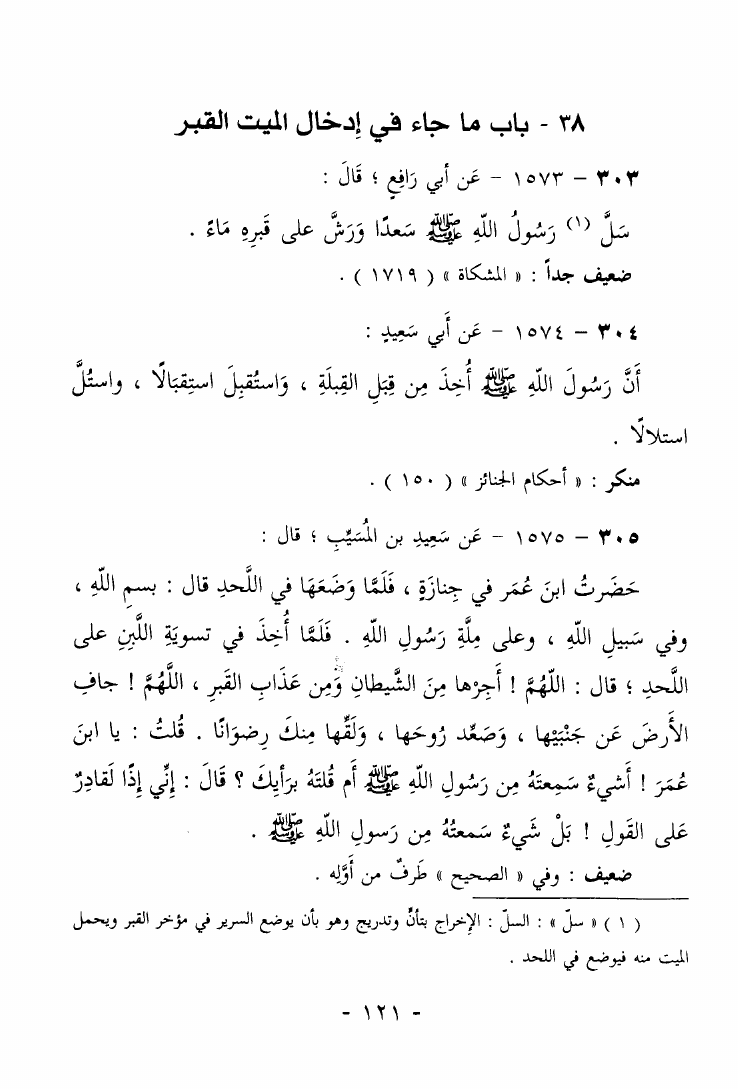 ٣٨ - باب ما جاء في إدخال الميت القبر
٣٠٣ - ١٥٧٣ - عَن أبي رَافِعٍ ؛ قَالَ :
سَلَّ (١) رَسُولُ اللّهِ ﷺ سَعدًا وَرَشَّ على قَبرِهِ مَاءً .
ضعيف جداً : « المشكاة » ( ١٧١٩ ) .
٣٠٤ - ١٥٧٤ - عَن أَبي سَعِيدٍ :
أَنَّ رَسُولَ اللّهِ ﷺ أُخِذَ مِن قِبَلِ القِبلَةِ ، وَاستُقبِلَ استِقبَالًا ، واستُلَّ
استلالًا .
منكر : « أحكام الجنائز » ( ١٥٠ ) .
٣٠٥ - ١٥٧٥ - عَن سَعِيدِ بن المُسَيِّبِ ؛ قال :
حَضَرتُ ابنَ عُمَر في جِنازَةٍ ، فَلَمَّا وَضَعَهَا في اللَّحدِ قال : بسمِ اللّهِ ،
وفي سَبيلِ اللّهِ ، وعلى مِلَّةِ رَسُولِ اللّهِ . فَلَمَّا أُخِذَ في تسويَةِ اللَّبِنِ على
اللَّحدِ ؛ قال : اللّهُمَّ ! أَجِرْها مِنَ الشَّيطانِ وَمِن عَذَابِ القَبرِ ، اللَّهُمَّ ! جافِ
الأَرضَ عَن جَنْبَيْها ، وَصَعِّد رُوحَها ، وَلَقِّها مِنكَ رِضوَانًا . قُلتُ : يا ابنَ
عُمَرَ ! أَشيءٌ سَمِعتَهُ مِن رَسُولِ اللّهِ ﷺ أَم قُلتَهُ برَأيِكَ ؟ قَالَ : إِنِّي إِذًا لَقادِرٌ
عَلى القَولِ ! بَلْ شَيءٌ سَمعتُهُ مِن رَسولِ اللّهِ ﷺ .
ضعيف : وفي « الصحيح » طَرفٌ من أَوَّلِه .
( ١ ) « سلّ » : السلّ : الإخراج بتأنٍّ وتدريج وهو بأن يوضع السرير في مؤخر القبر ويحمل
الميت منه فيوضع في اللحد .
- ١٢١ -